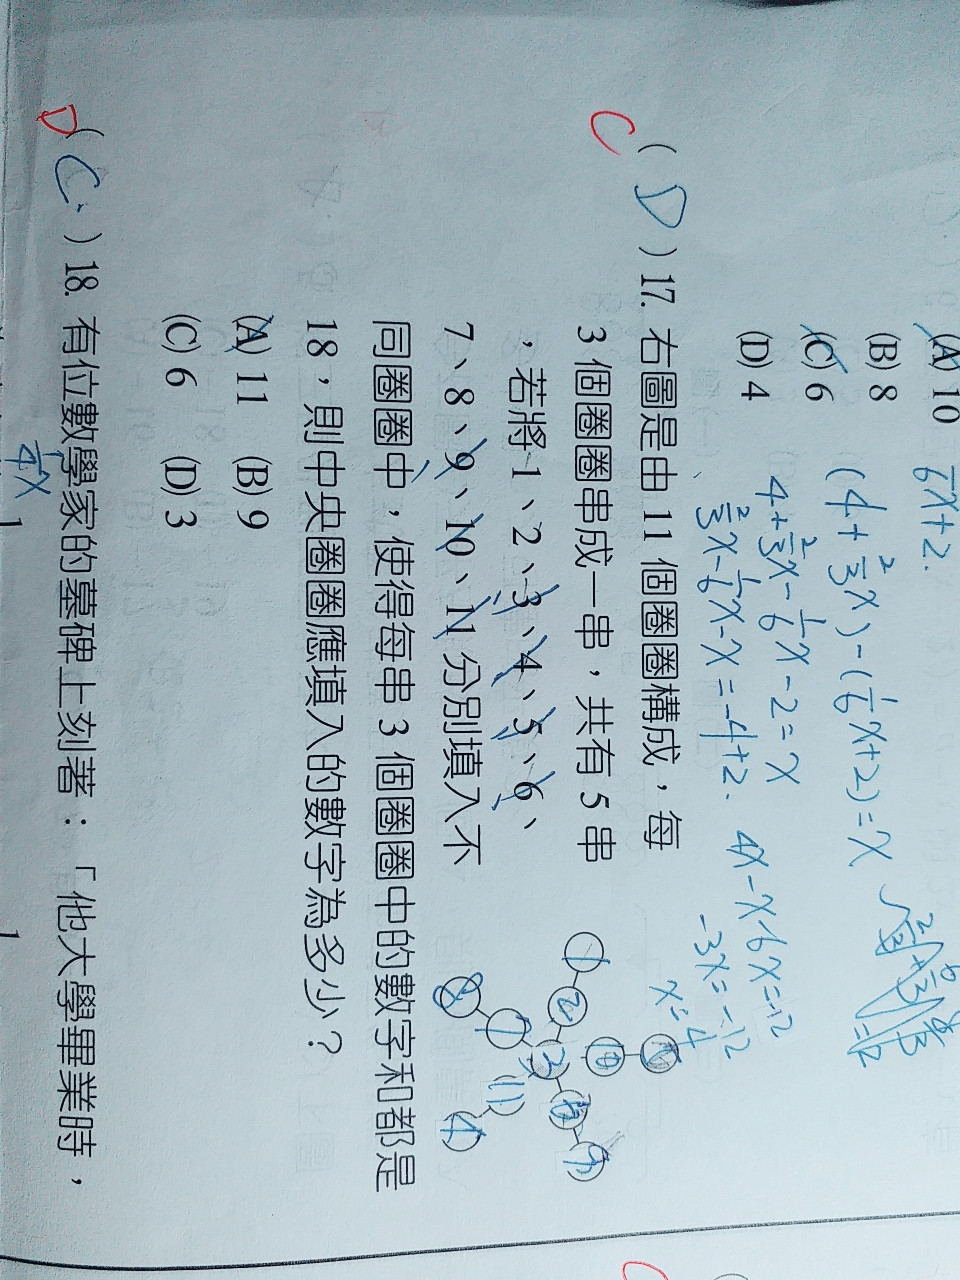 (A) 10
(B) 8
(C) 6
(D) 4
6x+2.
(4+2/3x)-(1/6x+2)=x
4+2/3x-1/6x-2=x
2/3x-1/6x-x=-4+2.
4x-x-6x=-12
-3x=-12
x=4
C
( D )17. 右圖是由 11 個圈圈構成，每
3 個圈圈串成一串，共有 5 串
，若將 1、2、3、4、5、6、
7、8、9、10、11 分別填入不
同圈圈中，使得每串 3 個圈圈中的數字和都是
18，則中央圈圈應填入的數字為多少？
(A) 11 (B) 9
(C) 6 (D) 3
1
2
8
7
3
10
11
4
9
D
( C )18. 有位數學家的墓碑上刻著：「他大學畢業時，
1/4x
1
1